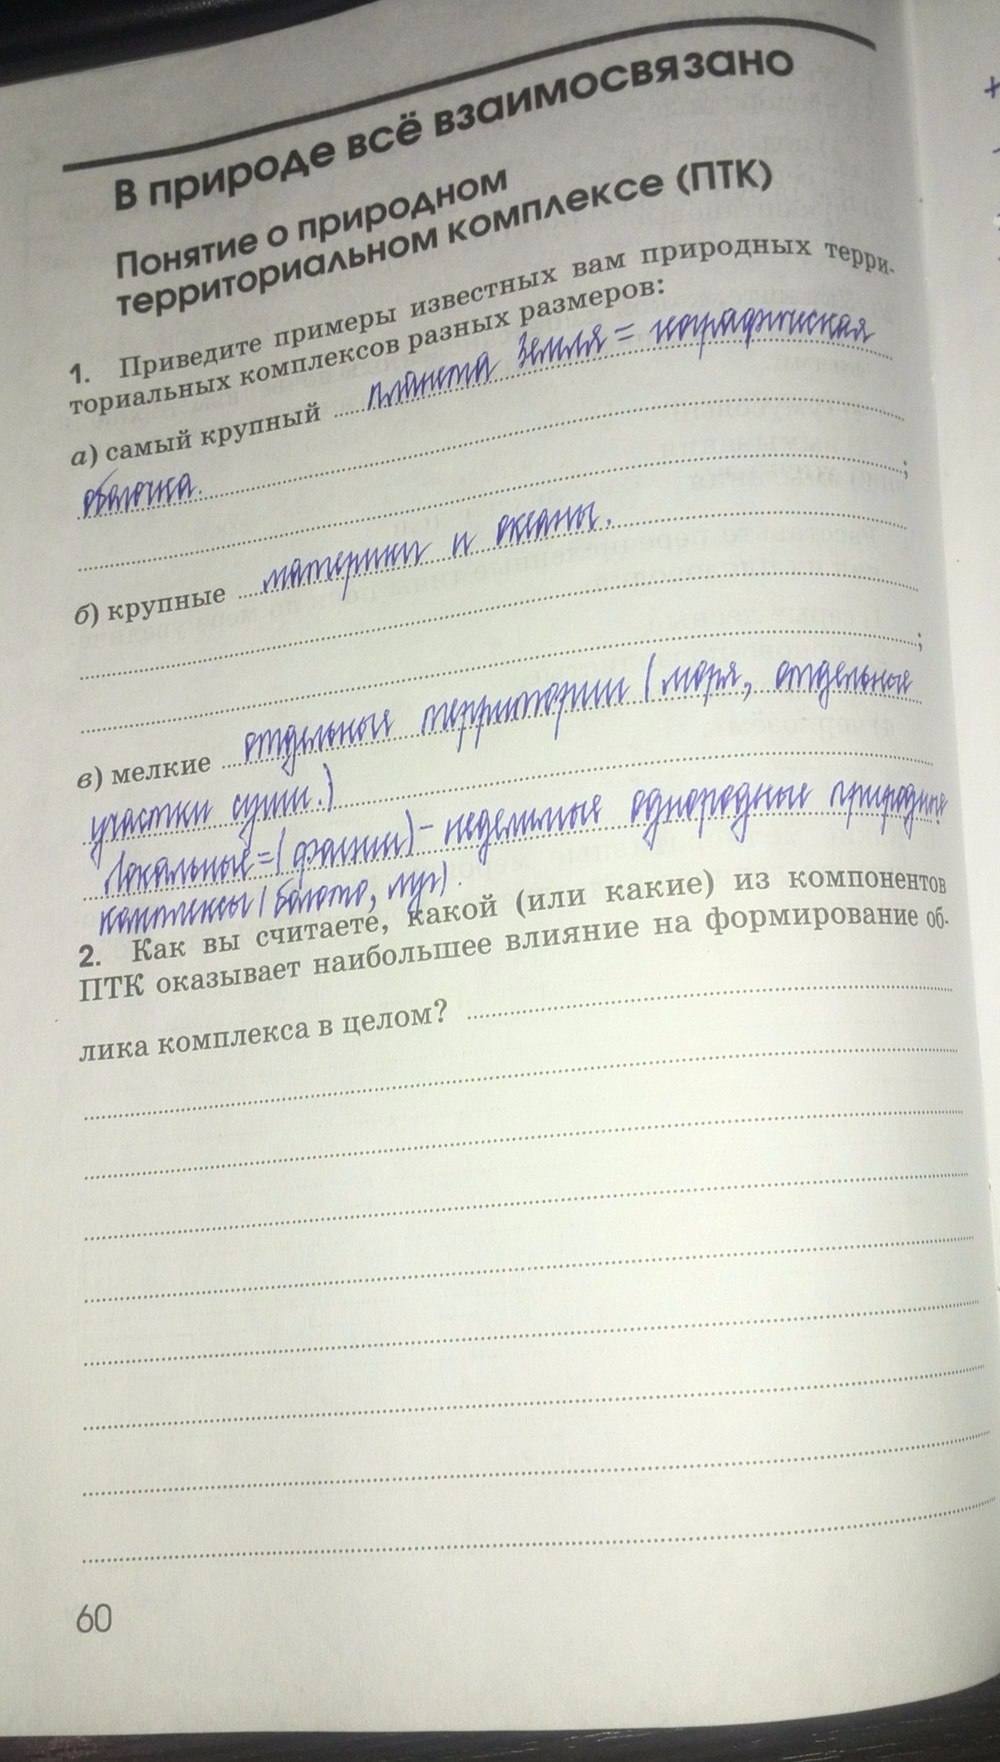 В природе всё взаимосвязано
Понятие о природном
территориальном комплексе (ПТК)
1. Приведите примеры известных вам природных терри-
ториальных комплексов разных размеров:
а) самый крупный планета Земля = географическая
оболочка.
;
б) крупные материки и океаны.
;
в) мелкие отдельные территории (моря, отдельные
участки суши.)
Локальные=(фации)-неделимые однородные природные
комплексы (болото, луг).
2. Как вы считаете, какой (или какие) из компонентов
ПТК оказывает наибольшее влияние на формирование об-
лика комплекса в целом?
60